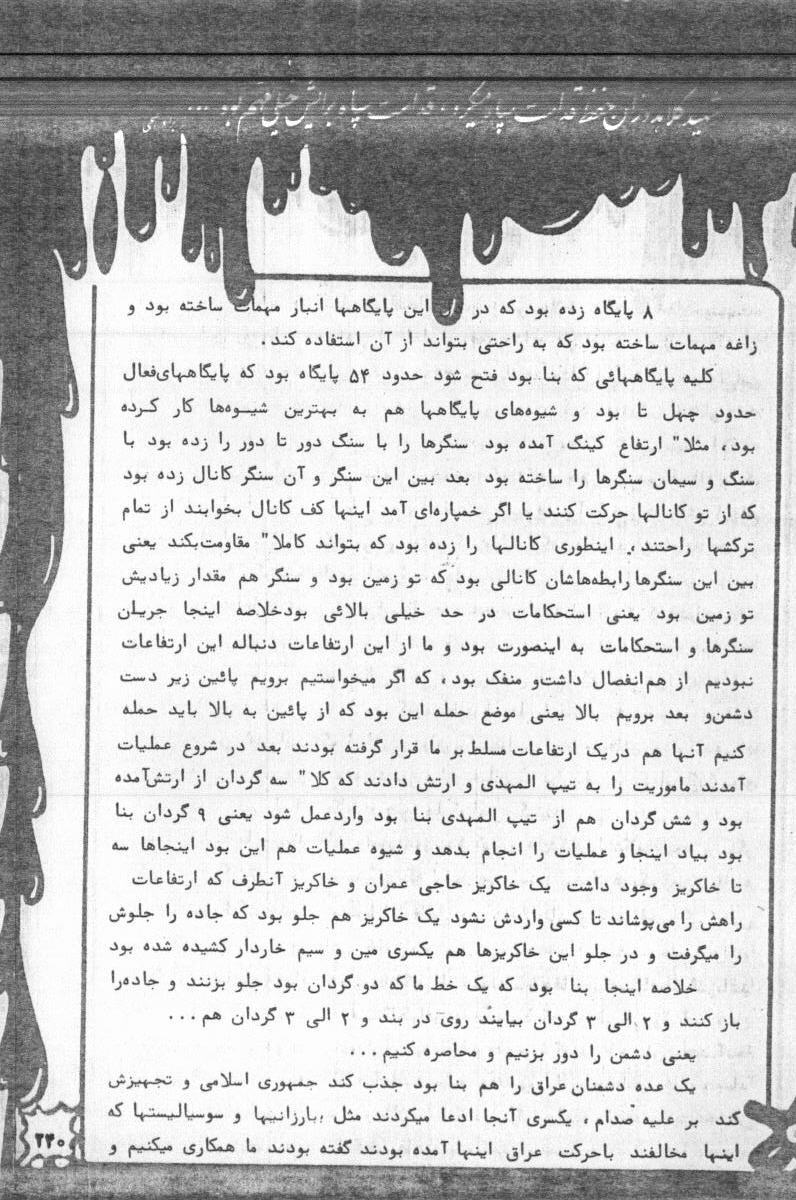 شهید کلاهدوزان حفظ قداست سپاه میکرد.. قداست سپاه برایش خیلی مهم بود ...
۸ پایگاه زده بود که در دل این پایگاهها انبار مهمات ساخته بود و
زاغه مهمات ساخته بود که به راحتی بتواند از آن استفاده کند.
کلیه پایگاههائی که بنا بود فتح شود حدود ۵۴ پایگاه بود که پایگاههای‌فعال
حدود چهل تا بود و شیوه‌های پایگاهها هم به بهترین شیوه‌ها کار کرده
بود، مثلا" ارتفاع کینگ آمده بود سنگرها را با سنگ دور تا دور را زده بود با
سنگ و سیمان سنگرها را ساخته بود بعد بین این سنگر و آن سنگر کانال زده بود
که از تو کانالها حرکت کنند یا اگر خمپاره‌ای آمد اینها کف کانال بخوابند از تمام
ترکشها راحتند، اینطوری کانالها را زده بود که بتواند کاملا" مقاومت‌بکند یعنی
بین این سنگرها رابطه‌هاشان کانالی بود که تو زمین بود و سنگر هم مقدار زیادیش
تو زمین بود یعنی استحکامات در حد خیلی بالائی بودخلاصه اینجا جریان
سنگرها و استحکامات به اینصورت بود و ما از این ارتفاعات دنباله این ارتفاعات
نبودیم از هم‌انفصال داشت‌و منفک بود، که اگر میخواستیم برویم پائین زیر دست
دشمن‌و بعد برویم بالا یعنی موضع حمله این بود که از پائین به بالا باید حمله
کنیم آنها هم دریک ارتفاعات مسلط بر ما قرار گرفته بودند بعد در شروع عملیات
آمدند ماموریت را به تیپ المهدی و ارتش دادند که کلا" سه گردان از ارتش‌آمده
بود و شش گردان هم از تیپ المهدی بنا بود واردعمل شود یعنی ۹ گردان بنا
بود بیاد اینجا و عملیات را انجام بدهد و شیوه عملیات هم این بود اینجاها سه
تا خاکریز وجود داشت یک خاکریز حاجی عمران و خاکریز آنطرف که ارتفاعات
راهش را می‌پوشاند تا کسی واردش نشود یک خاکریز هم جلو بود که جاده را جلوش
را میگرفت و در جلو این خاکریزها هم یکسری مین و سیم خاردار کشیده شده بود
خلاصه اینجا بنا بود که یک خط ما که دو گردان بود جلو بزنند و جاده‌را
باز کنند و ۲ الی ۳ گردان بیایند روی در بند و ۲ الی ۳ گردان هم...
یعنی دشمن را دور بزنیم و محاصره کنیم...
یک عده دشمنان عراق را هم بنا بود جذب کند جمهوری اسلامی و تجهیزش
کند بر علیه صدام، یکسری آنجا ادعا میکردند مثل بارزانیها و سوسیالیستها که
اینها مخالفند باحرکت عراق اینها آمده بودند گفته بودند ما همکاری میکنیم و
۲۴۰